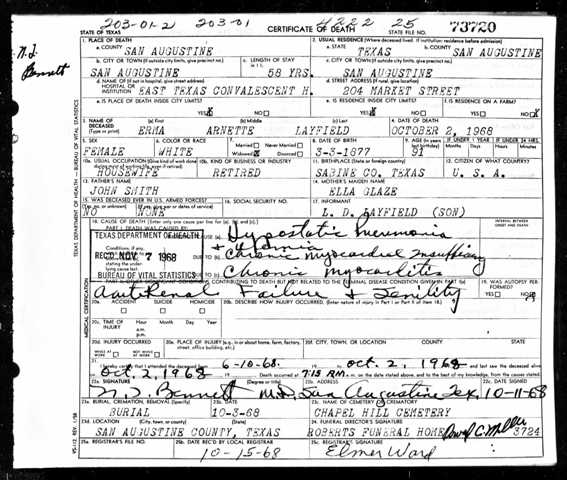 203-01-2 203-01 4222 25 73720
STATE OF TEXAS CERTIFICATE OF DEATH
N.J. Bennett
TEXAS DEPARTMENT OF HEALTH — BUREAU OF VITAL STATISTICS
1. PLACE OF DEATH 2. USUAL RESIDENCE (Where deceased lived. If institution: residence before admission)
a. COUNTY SAN AUGUSTINE a. STATE TEXAS b. COUNTY SAN AUGUSTINE
b. CITY OR TOWN (If outside city limits, give precinct no.) c. LENGTH OF STAY c. CITY OR TOWN (If outside city limits, give precinct no.)
SAN AUGUSTINE 58 YRS. SAN AUGUSTINE
d. NAME OF (If not in hospital, give street address) HOSPITAL OR INSTITUTION EAST TEXAS CONVALESCENT H. d. STREET ADDRESS (If rural, give location) 204 MARKET STREET
e. IS PLACE OF DEATH INSIDE CITY LIMITS? e. IS RESIDENCE INSIDE CITY LIMITS? f. IS RESIDENCE ON A FARM?
YES NO YES NO YES NO
3. NAME OF DECEASED (Type or print) (a) First (b) Middle (c) Last 4. DATE OF DEATH
ERMA ARNETTE LAYFIELD OCTOBER 2, 1968
5. SEX 6. COLOR OR RACE 7. Married Never Married Widowed Divorced 8. DATE OF BIRTH 9. AGE (In years last birthday) IF UNDER 1 YEAR IF UNDER 24 HRS.
FEMALE WHITE 3-5-1877 91 Months Days Hours Min.
10a. USUAL OCCUPATION (Give kind of work done during most of working life, even if retired) 10b. KIND OF BUSINESS OR INDUSTRY 11. BIRTHPLACE (State or foreign country) 12. CITIZEN OF WHAT COUNTRY?
HOUSEWIFE RETIRED SABINE CO. TEXAS U. S. A.
13. FATHER'S NAME 14. MOTHER'S MAIDEN NAME
JOHN SMITH ELLA GLAZE
15. WAS DECEASED EVER IN U.S. ARMED FORCES? 16. SOCIAL SECURITY NO. 17. INFORMANT
NO NONE L. D. LAYFIELD (SON)
18. CAUSE OF DEATH (Enter only one cause per line for (a), (b), and (c).) INTERVAL BETWEEN ONSET AND DEATH
PART I. DEATH WAS CAUSED BY: Hypostatic Pneumonia
TEXAS DEPARTMENT OF HEALTH
+ Uremia
REC'D NOV 7 1968 DUE TO (b) Chronic myocardial insufficiency
BUREAU OF VITAL STATISTICS DUE TO (c) Chronic myocarditis
19. WAS AUTOPSY PERFORMED? YES NO
Acute Renal Failure + Senility
MEDICAL CERTIFICATION
20a. ACCIDENT SUICIDE HOMICIDE 20b. DESCRIBE HOW INJURY OCCURRED. (Enter nature of injury in Part I or Part II of item 18.)
20c. TIME OF INJURY Hour Month Day Year a.m. p.m.
20d. INJURY OCCURRED WHILE AT WORK NOT WHILE AT WORK 20e. PLACE OF INJURY (e.g. in or about home, farm, factory, street, office building, etc.) 20f. CITY, TOWN, OR LOCATION COUNTY STATE
21. I hereby certify that I attended the deceased from 6-10-68 to Oct. 2, 1968 and last saw the deceased alive
on Oct. 2, 1968 Death occurred at 7:15 P.M. m. on the date stated above, and to the best of my knowledge, from the causes stated.
22a. SIGNATURE (Degree or title) 22b. ADDRESS 22c. DATE SIGNED
N. J. Bennett M.D. San Augustine Tex. 10-11-68
23a. BURIAL, CREMATION, REMOVAL (Specify) 23b. DATE 23c. NAME OF CEMETERY OR CREMATORY
BURIAL 10-3-68 CHAPEL HILL CEMETERY
23d. LOCATION (City, town, or county) (State) 24. FUNERAL DIRECTOR'S SIGNATURE
SAN AUGUSTINE COUNTY, TEXAS ROBERTS FUNERAL HOME 3724
25a. REGISTRAR'S FILE NO. 25b. DATE REC'D BY LOCAL REGISTRAR 25c. REGISTRAR'S SIGNATURE
10-15-68 Elmer Ward
VS-112 REV. 1/58